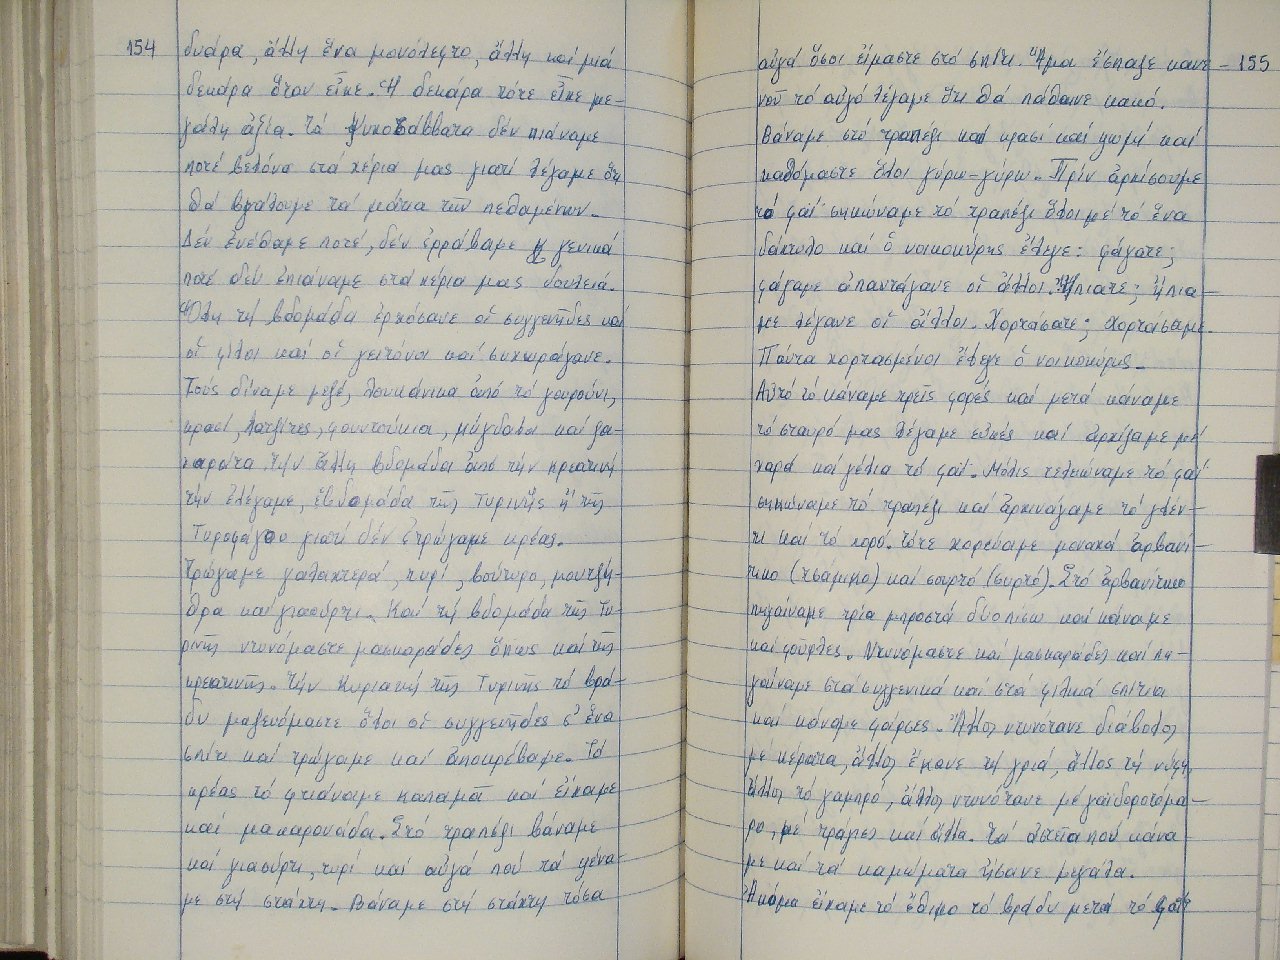 154
δυάρα, ἄλλη ἕνα μονόλεφτο, ἄλλη καί μιά
δεκάρα ὅταν εἶχε. Ἡ δεκάρα τότε εἶχε με-
γάλη ἀξία. Τά ψυχοσάββατα δέν πιάναμε
ποτέ βελόνα στά χέρια μας γιατί λέγαμε ὅτι
θά βγάλουμε τά μάτια τῶν πεθαμένων.
Δέν ἐνέθαμε ποτέ, δέν ἐρράβαμε γενικά
ποτέ δέν ἐπιάναμε στά χέρια μας δουλειά.
Ὅλη τή βδομάδα ἐρχόσανε οἱ συγγενῆδες καί
οἱ φίλοι καί οἱ γειτόνοι καί συχωράγανε.
Τούς δίναμε μεζέ, λουκάνικα ἀπό τό γουρούνι,
κρασί, λατζίτες, φουντούκια, μύγδαλα καί ζα-
χαράτα. Τήν ἄλλη βδομάδα ἀπό τήν κρεατινή
τήν ἐλέγαμε, ἑβδομάδα τῆς Τυρινῆς ἤ τῆς
Τυροφάγου γιατί δέν ἐτρώγαμε κρέας.
Τρώγαμε γαλαχτερά, τυρί, βούτυρο, μουτζή-
θρα καί γιαούρτι. Καί τή βδομάδα τῆς Τυ-
ρινῆς ντυνόμαστε μασκαράδες ὅπως καί τῆς
κρεατινῆς. Τήν Κυριακή τῆς Τυρινῆς τό βρά-
δυ μαζευόμαστε ὅλοι οἱ συγγενῆδες σ' ἕνα
σπίτι καί τρώγαμε καί ἀποκρέβαμε. Τό
κρέας τό φτιάναμε καπαμᾶ καί εἴχαμε
καί μακαρονάδα. Στό τραπέζι βάναμε
καί γιαούρτι, τυρί καί αὐγά πού τά ψένα-
με στή στάχτη. Βάναμε στή στάχτη τόσα
155
αὐγά ὅσοι εἴμαστε στό σπίτι. Ἅμα ἔσπαζε κανε-
νοῦ τό αὐγό λέγαμε ὅτι θά πάθαινε κακό.
Βάναμε στό τραπέζι καί κρασί καί ψωμί καί
καθόμαστε ὅλοι γύρω-γύρω. Πρίν ἀρχίσουμε
τό φαΐ σηκώναμε τό τραπέζι ὅλοι μέ τό ἕνα
δάχτυλο καί ὁ νοικοκύρης ἔλεγε: φάγατε;
φάγαμε ἀπαντάγανε οἱ ἄλλοι. Ἤπιατε; ἤπια-
με λέγανε οἱ ἄλλοι. Χορτάσατε; χορτάσαμε.
Πάντα χορτασμένοι ἔλεγε ὁ νοικοκύρης.
Αὐτό τό κάναμε τρεῖς φορές καί μετά κάναμε
τό σταυρό μας λέγαμε εὐχές καί ἀρχίζαμε μέ
χαρά καί γέλια τό φαΐ. Μόλις τελειώναμε τό φαΐ
σηκώναμε τό τραπέζι καί ἀρχινάγαμε τό γλέν-
τι καί τό χορό. Τότε χορεύαμε μοναχά ἀρβανί-
τικο (τσάμικο) καί σουρτό (συρτό). Στό ἀρβανίτικο
πηγαίναμε τρία μπροστά δύο πίσω καί κάναμε
καί φοῦρλες. Ντυνόμαστε καί μασκαράδες καί πη-
γαίναμε στά συγγενικά καί στά φιλικά σπίτια
καί κάναμε φάρσες. Ἄλλος ντυνότανε διάβολος
μέ κέρατα, ἄλλος ἔκανε τή γριά, ἄλλος τή νύφη,
ἄλλος τό γαμπρό, ἄλλος ντυνότανε μέ γαϊδοροτόμα-
ρο, μέ τράγιες καί ἄλλα. Τά ἀστεῖα πού κάνα-
με καί τά καμώματα ἤσανε μεγάλα.
Ἀκόμα εἴχαμε τό ἔθιμο τό βράδυ μετά τό φαΐ